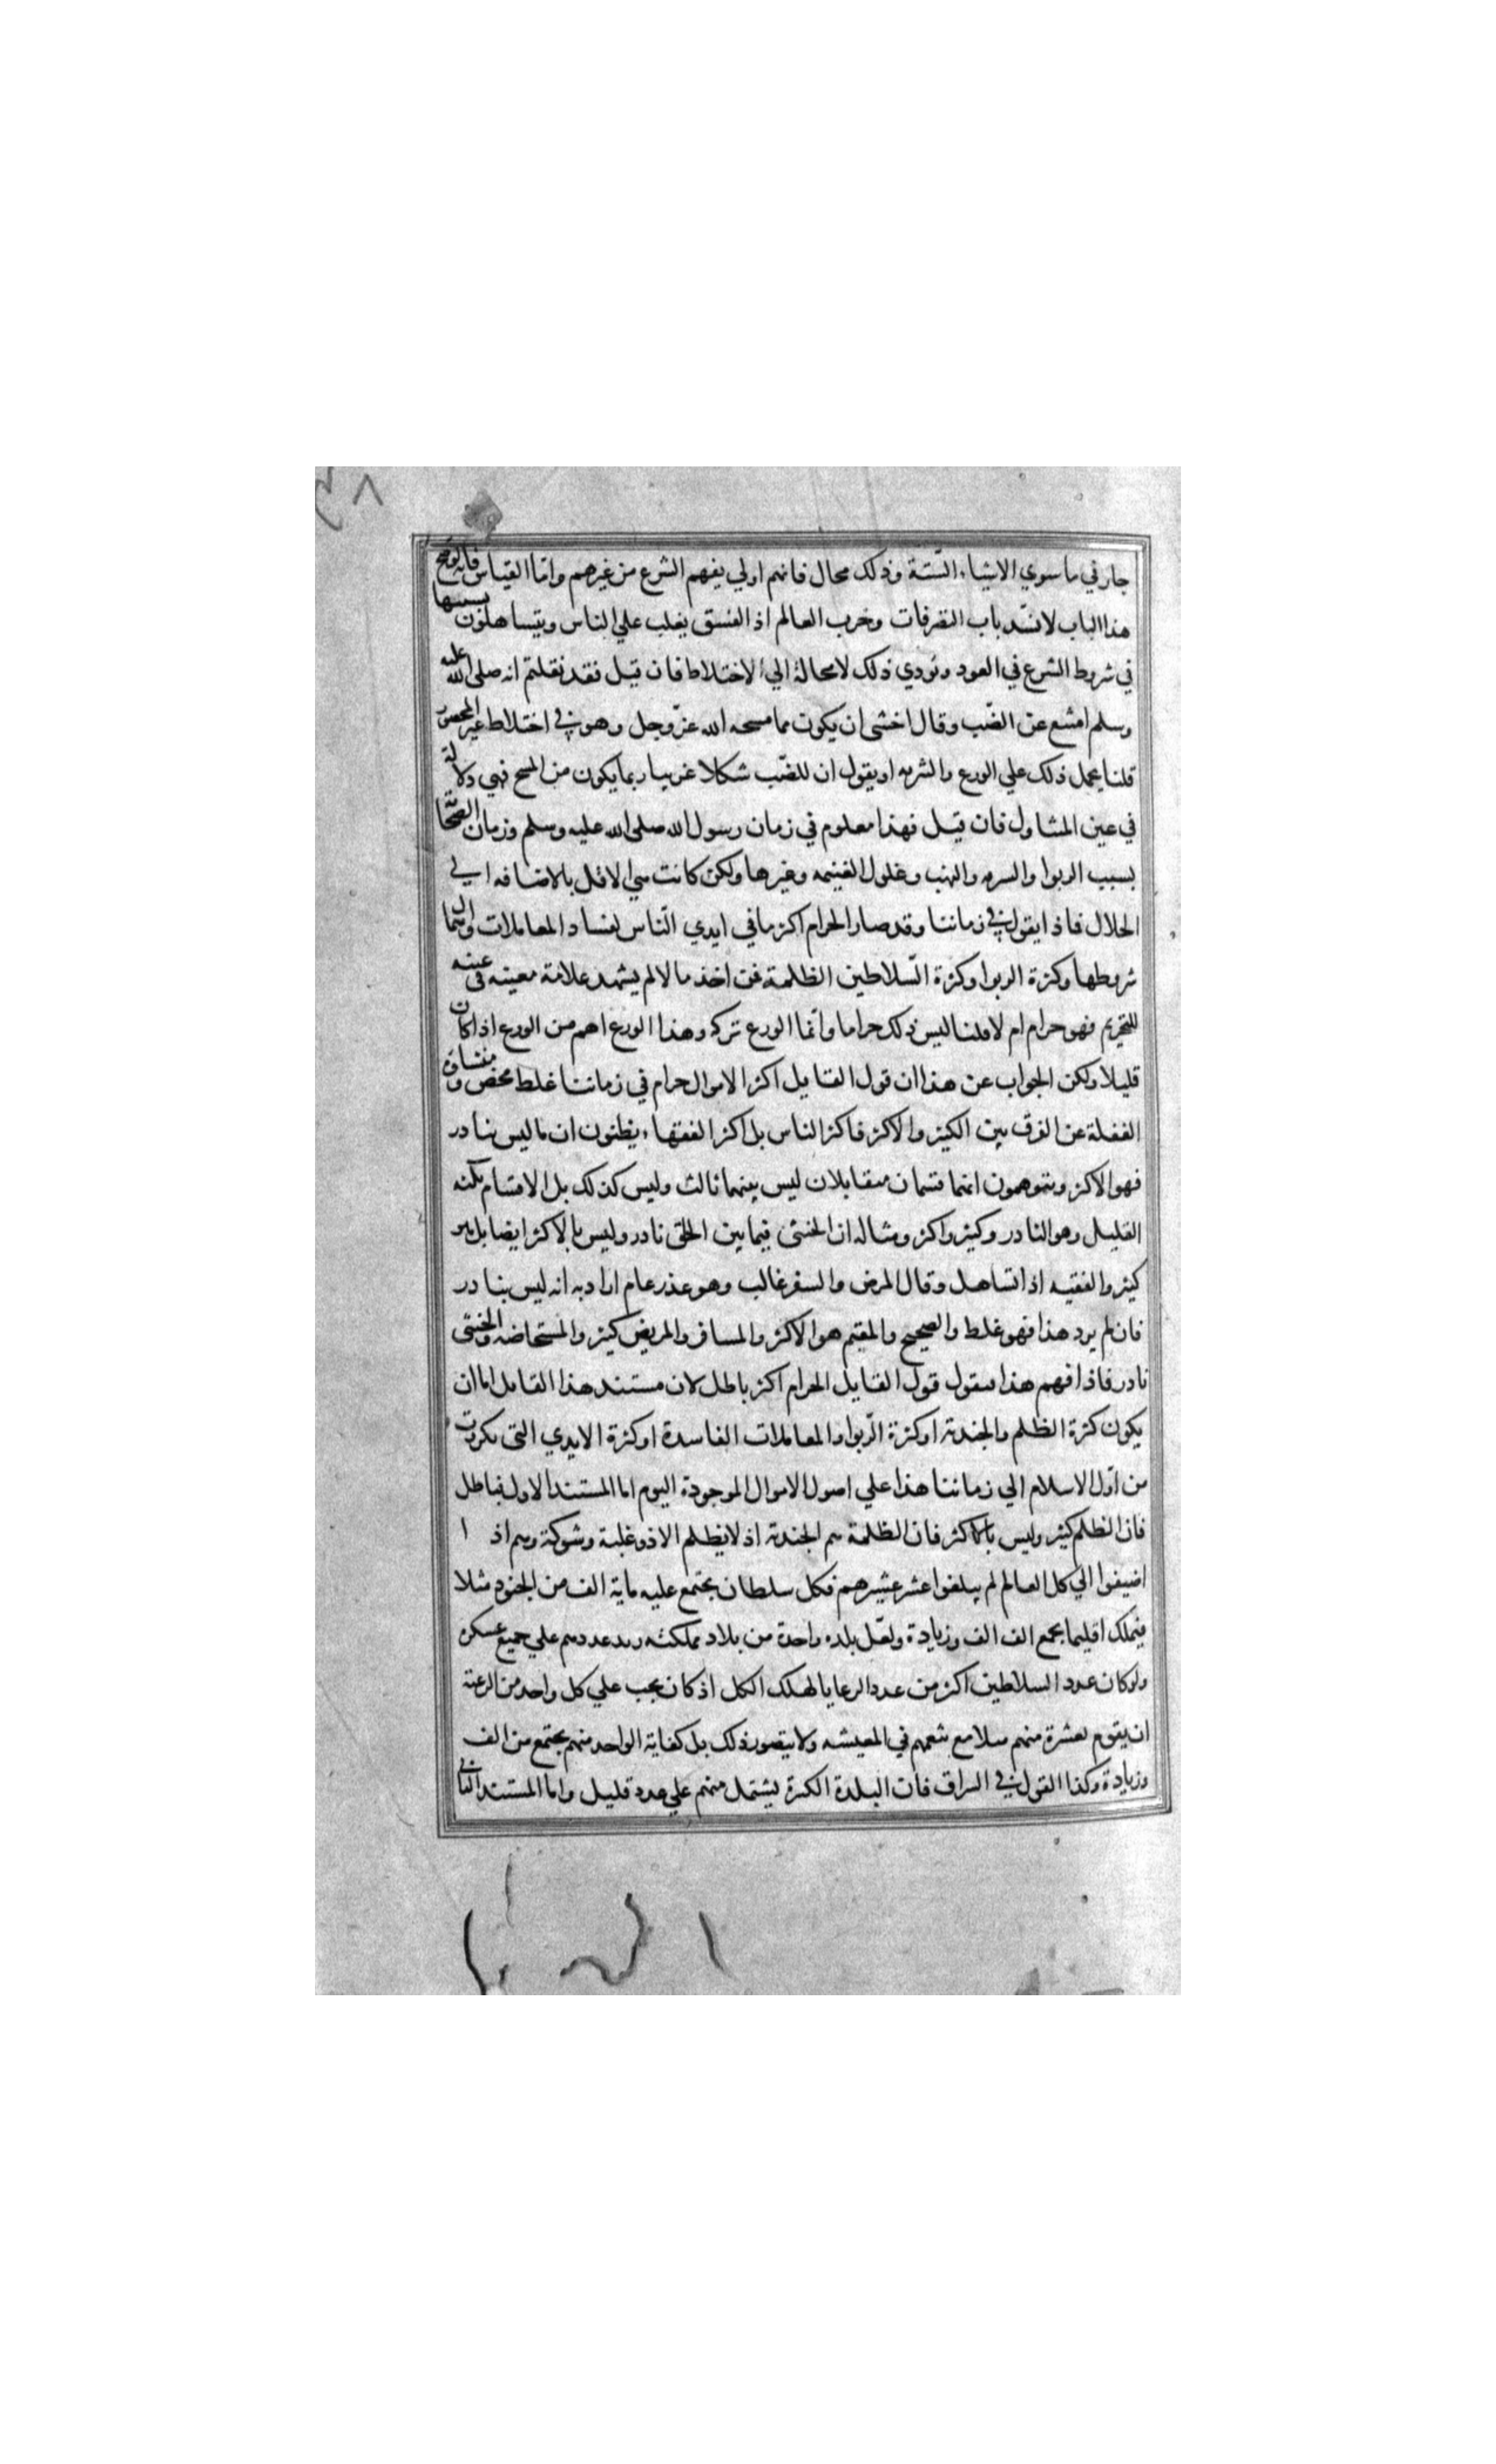 جار في ما سوي الاشياء الستة وذلك محال فانهم اولي بفهم الشرع من غيرهم واما القياس فانه لو فتح
هذا الباب لانسد باب التصرفات وخرب العالم اذ الفسق يغلب علي الناس ويتساهلون بسببها
في شروط الشرع في العود وتودي ذلك لا محالة الي الاختلاط فان قيل فقد نقلتم انه صلى الله عليه
وسلم امتنع عن الضب وقال اخشى ان يكون مما مسحه الله عز وجل وهو في اختلاط غير المحصور
قلنا يحمل ذلك علي الورع والتنزيه او يقول ان للضب شكلا غريبا ربما يكون من المسح فهي دلالة
في عين المتناول فان قيل فهذا معلوم في زمان رسول الله صلى الله عليه وسلم وزمان الصحابة
بسبب الربوا والسرقه والنهب وغلول الغنيمه وغيرها ولكن كانت هي الاقل بالاضافه الي
الحلال فماذا يقول في زماننا وقد صار الحرام اكثر ما في ايدي الناس لفساد المعاملات واهمال
شروطها وكثرة الربوا وكثرة السلاطين الظلمة فمن اخذ مالا لم يشهد علامة معينه في عينه
للتحريم فهو حرام ام لا قلنا ليس ذلك حراما وانما الورع تركه وهذا الورع اهم من الورع اذا كان
قليلا ولكن الجواب عن هذا ان قول القايل اكثر الاموال حرام في زماننا غلط محض ومنشاؤه
الغفلة عن الفرق بين الكثير والاكثر فاكثر الناس بل اكثر الفقهاء يظنون ان ما ليس نادر
فهو الاكثر ويتوهمون انهما قسمان متقابلان ليس بينهما ثالث وليس كذلك بل الاقسام ثلثه
القليل وهو النادر وكثير واكثر ومثاله ان الخنثى فيما بين الخلق نادر وليس بالاكثر ايضا بل هو
كثير والفقيه اذا تساهل وقال المرض والسفر غالب وهو عذر عام اراد به انه ليس بنادر
فان لم يرد هذا فهو غلط والصحيح والمقيم هو الاكثر والمسافر والمريض كثير والمستحاضه والخنثى
نادر فاذا فهم هذا فنقول قول القايل الحرام اكثر باطل لان مستند هذا القايل اما ان
يكون كثرة الظلم والجندية او كثرة الربوا والمعاملات الفاسدة او كثرة الايدي التي تكررت
من اول الاسلام الي زماننا هذا علي اصول الاموال الموجودة اليوم اما المستند الاول فباطل
فان الظلم كثير وليس بالاكثر فان الظلمة هم الجندية اذ لا يظلم الا ذو غلبة وشوكة وهم اذ ا
اضيفوا الي كل العالم لم يبلغوا عشر عشيرهم فكل سلطان يجتمع عليه ماية الف من الجنود مثلا
فيملك اقليما يجمع الف الف وزيادة ولعل بلده واحدة من بلاد مملكته يزيد عددهم علي جميع عسكره
ولو كان عدد السلاطين اكثر من عدد الرعايا لهلك الكل اذ كان يجب علي كل واحد من الرعية
ان يقوم بعشرة منهم مثلا مع تنعمهم في المعيشه ولا يتصور ذلك بل كفاية الواحد منهم يجتمع من الف
وزيادة وكذا القول في السراق فان البلدة الكبيرة يشتمل منهم علي عدد قليل واما المستند الثاني